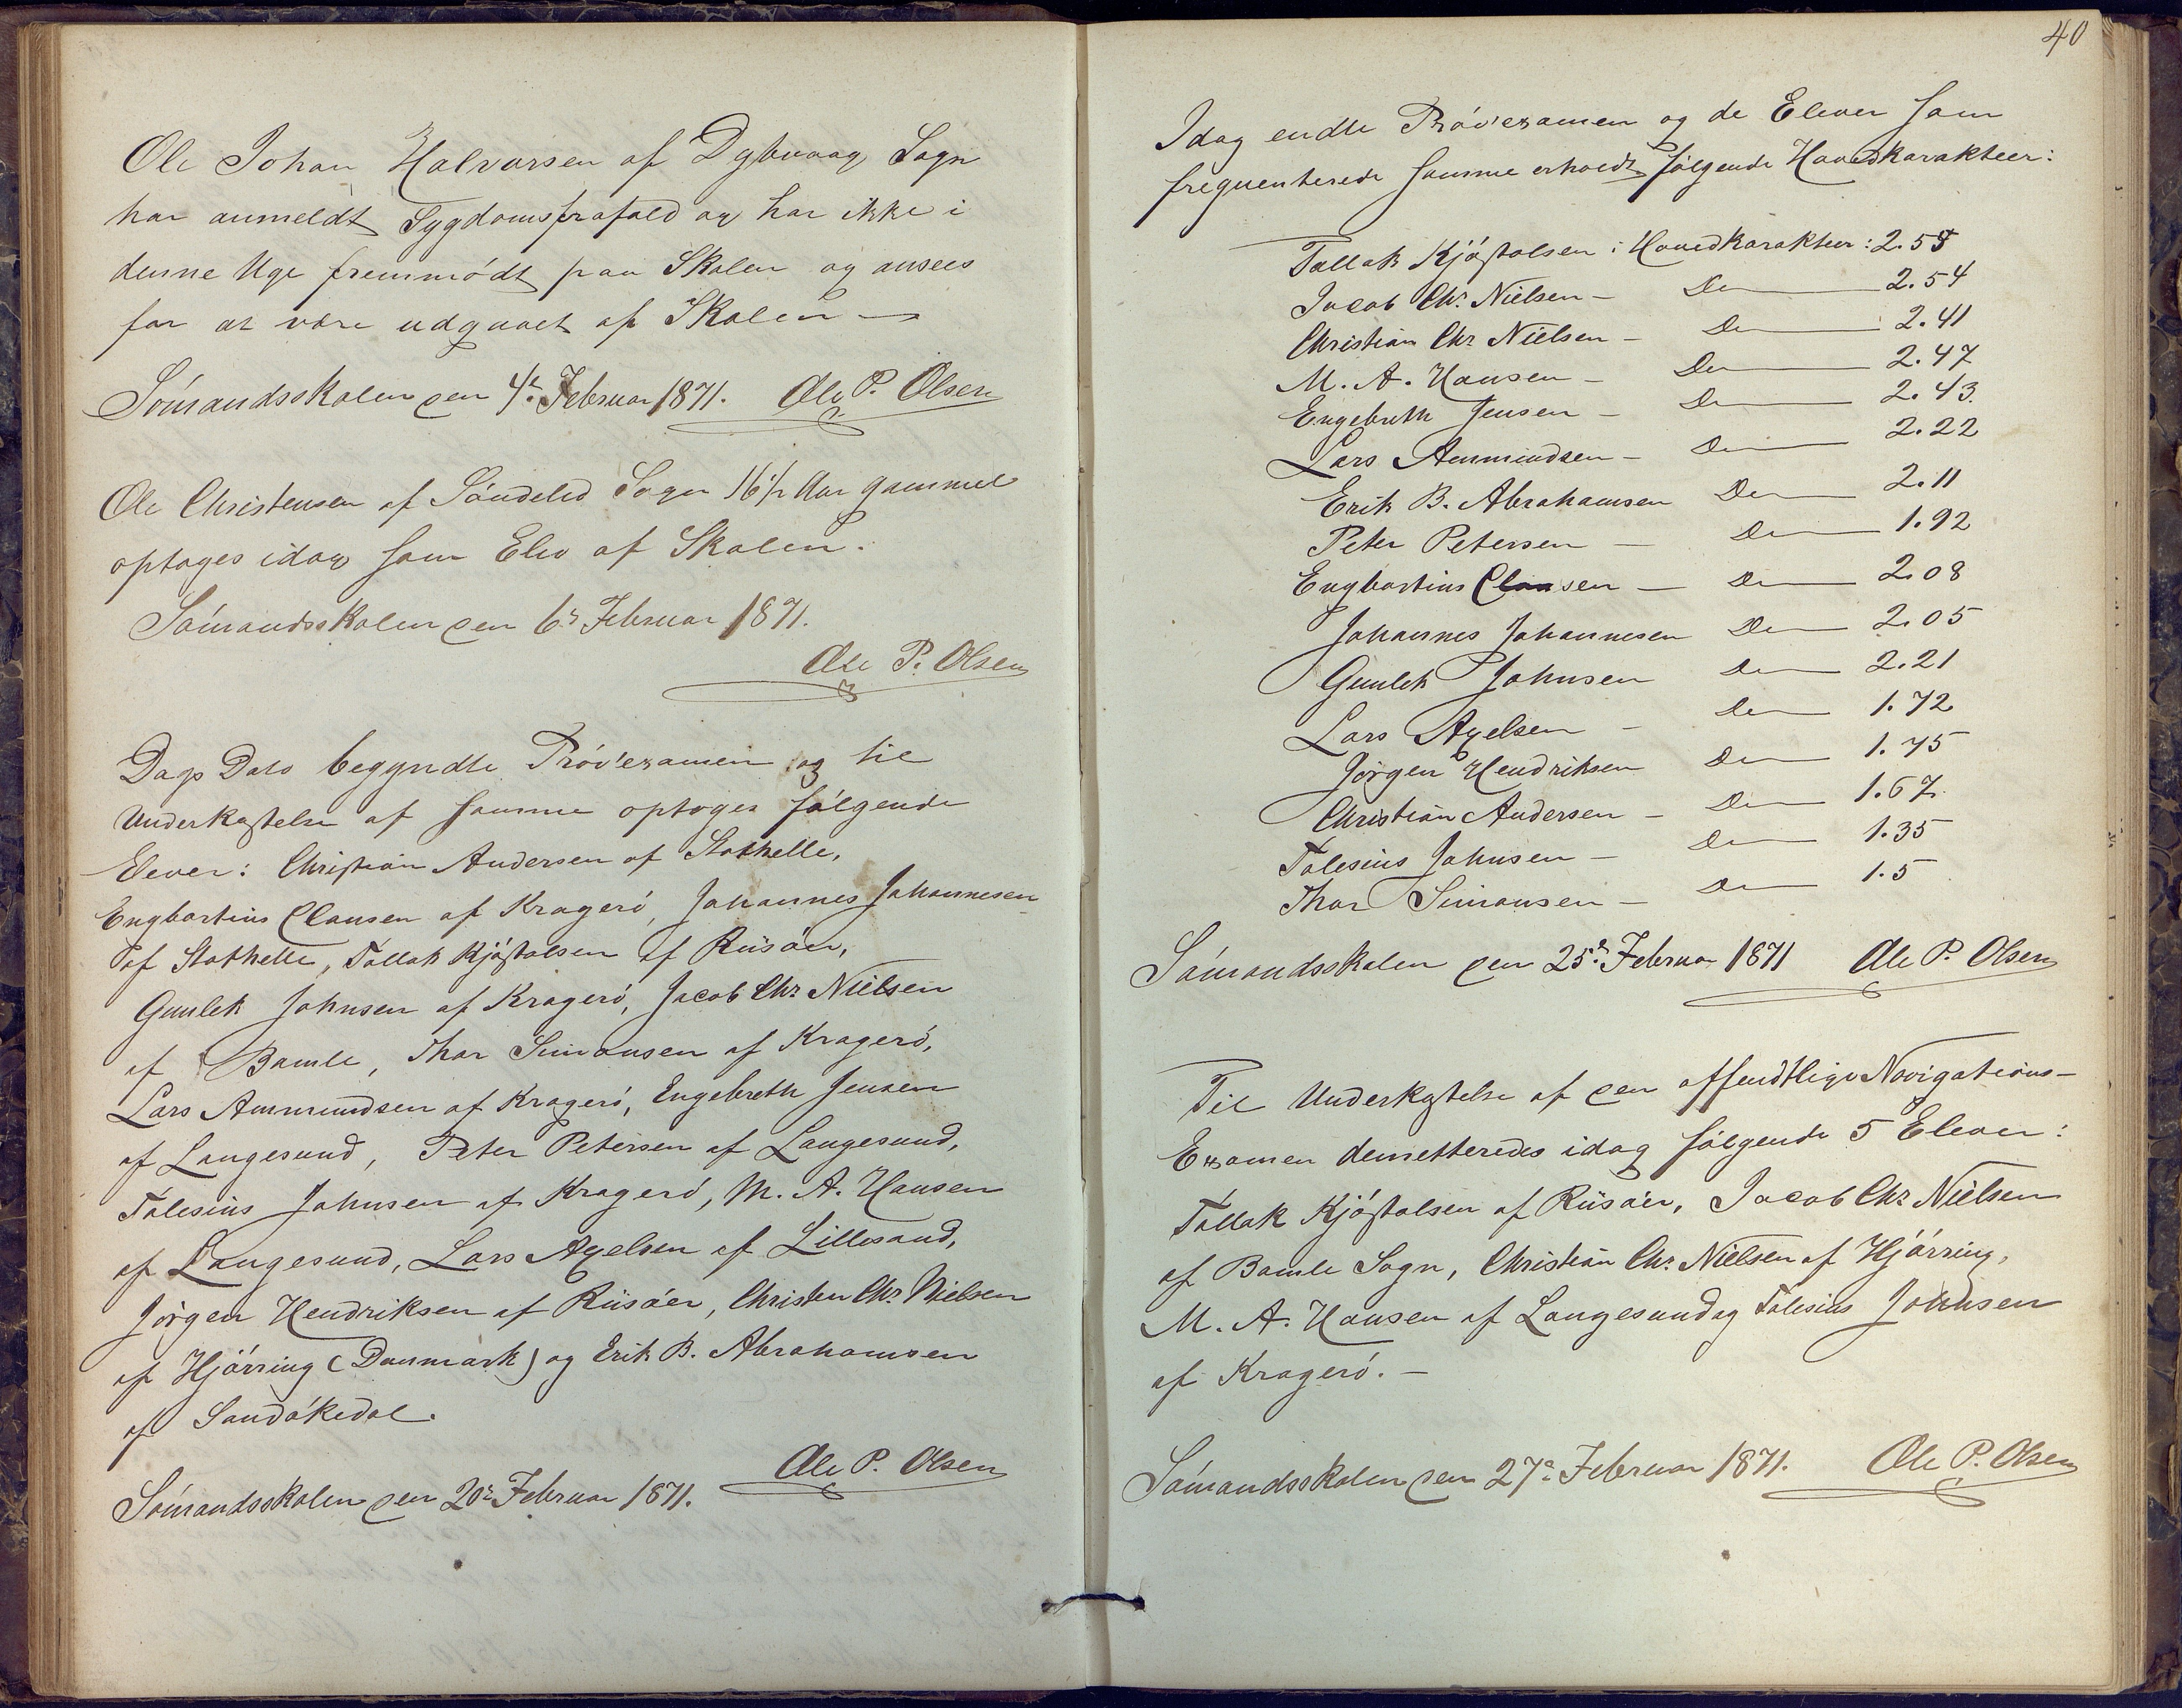 Ole Johan Halvorsen af Dybvaag Sogn
har anmeldt Sygdomsforfald og har ikke i
denne Uge fremmödt paa Skolen og ansees
for at være udgaaet af Skolen —
Sömandsskolen den 4de Februar 1871. Ole P. Olsen
Ole Christensen af Söndeled Sogn 16½ Aar gammel
optoges idag som Elev af Skolen.
Sömandsskolen den 6te Februar 1871.
Ole P. Olsen
Dags Dato begyndte Pröveexamen og til
Underkastelse af samme optoges fölgende
Elever: Christian Andersen af Stathelle,
Engbartius Clausen af Kragerö, Johannes Johannesen
af Stathelle, Tallak Kjöstolsen af Riisöer,
Gunlek Johnsen af Kragerö, Jacob Chr Nielsen
af Bamle, Thor Simonsen af Kragerö,
Lars Ammundsen af Kragerö, Engebreth Jensen
af Langesund, Peter Petersen af Langesund,
Tolesius Johnsen af Kragerö, M. A. Hansen
af Langesund, Lars Axelsen af Lillesand,
Jörgen Hendriksen af Riisöer, Christen Chr. Nielsen
af Hjörring (Danmark) og Erik B. Abrahamsen
af Sandökedal.
Ole P. Olsen
Sömandsskolen den 20de Februar 1871.
40
Idag endte Pröveexamen og de Elever som
frequenterede samme erholdt fölgende Hovedkarakteer:
Tallak Kjöstolsen: Hovedkarakteer: 2.55
Jacob Chr. Nielsen — Do — 2.54
Christian Chr Nielsen — Do — 2.41
M. A. Hansen — Do — 2.47
Engebreth Jensen — Do — 2.43.
Lars Ammundsen — Do — 2.22
Erik B. Abrahamsen Do — 2.11
Peter Petersen — Do — 1.92
Engbartius Clausen — Do — 2.08
Johannes Johannesen Do — 2.05
Gunlek Johnsen Do — 2.21
Lars Axelsen — Do — 1.72
Jörgen Hendriksen Do — 1.75
Christian Andersen — Do — 1.67
Tolesius Johnsen — Do — 1.35
Thor Simonsen — Do — 1.5
Sömandsskolen den 25de Februar 1871 Ole P. Olsen
Til Underkastelse af den offendtlige Navigations-
Examen demetteredes idag fölgende 5 Elever:
Tallak Kjöstolsen af Riisöer, Jacob Chr Nielsen
af Bamle Sogn, Christian Chr. Nielsen af Hjörring,
M. A. Hansen af Langesund og Tolesius Johnsen
af Kragerö. —
Sömandsskolen den 27de Februar 1871. Ole P. Olsen